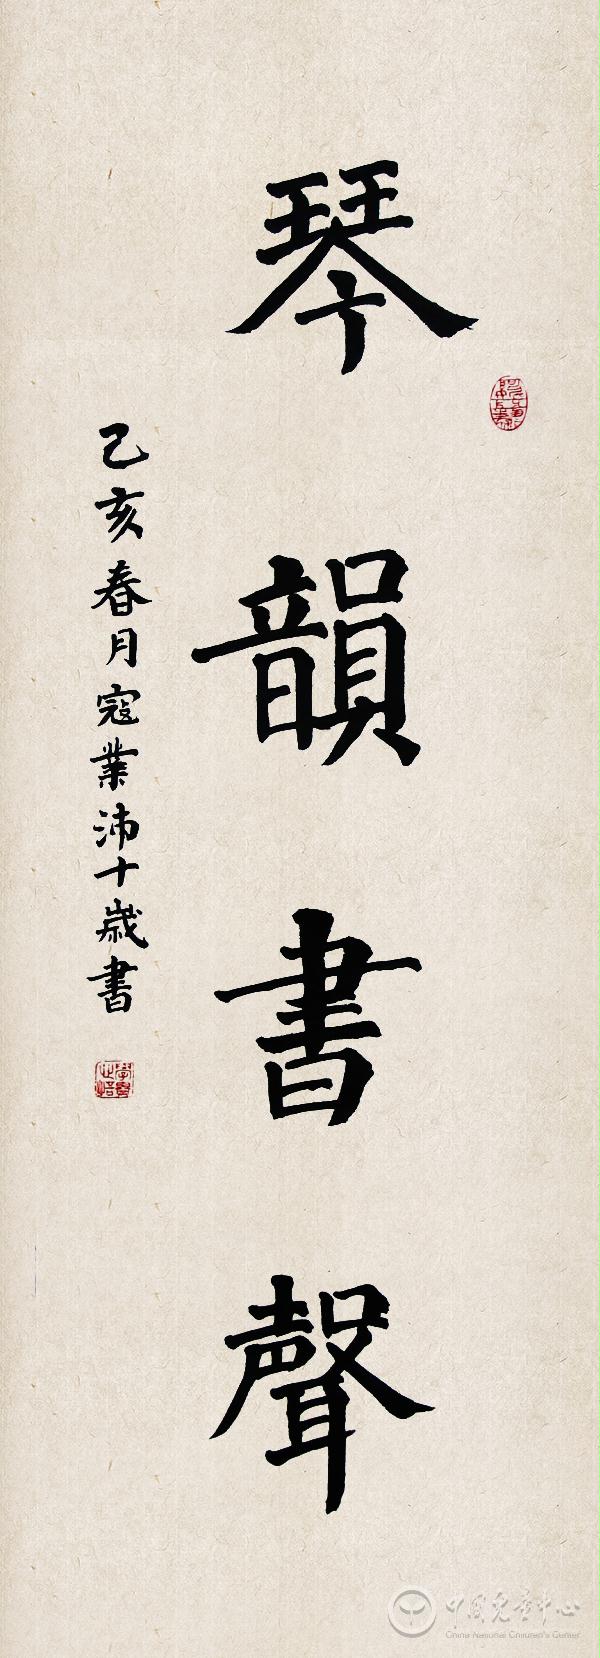 琴韻書聲
己亥春月寇業沛十歲書
中國兒童中心
China National Children's Center